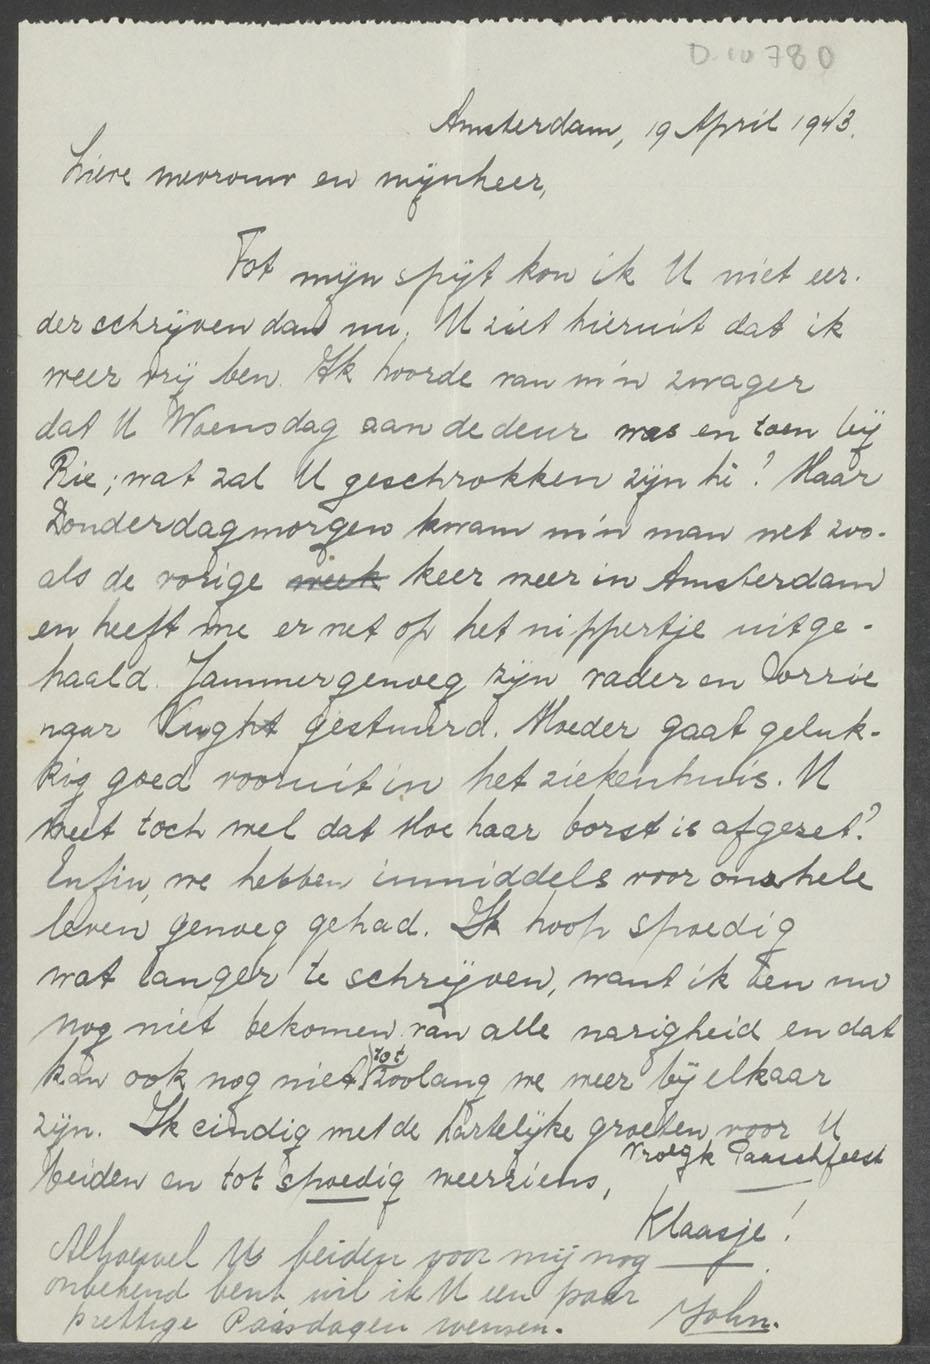 D. 10780
Amsterdam, 19 April 1943.
Lieve mevrouw en mijnheer,
Tot mijn spijt kon ik U niet eer-
der schrijven dan nu. U ziet hieruit dat ik
weer vrij ben. Ik hoorde van m'n zwager
dat U Woensdag aan de deur was en toen bij
Rie; wat zal U geschrokken zijn hè? Maar
Donderdagmorgen kwam m'n man net zoo-
als de vorige week keer weer in Amsterdam
en heeft me er net op het nippertje uitge-
haald. Jammergenoeg zijn vader en Corrie
naar Vught gestuurd. Moeder gaat geluk-
kig goed vooruit in het ziekenhuis. U
weet toch wel dat Moe haar borst is afgezet?
Enfin, we hebben inmiddels voor ons hele
leven genoeg gehad. Ik hoop spoedig
wat langer te schrijven, want ik ben nu
nog niet bekomen van alle narigheid en dat
kan ook nog niet tot zoolang we weer bij elkaar
zijn. Ik eindig met de hartelijke groeten voor U
beiden en tot spoedig weerziens, vroolijk Paaschfeest
Klaasje!
Alhoewel U beiden voor mij nog
onbekend bent wil ik U een paar
prettige Paasdagen wensen. John.